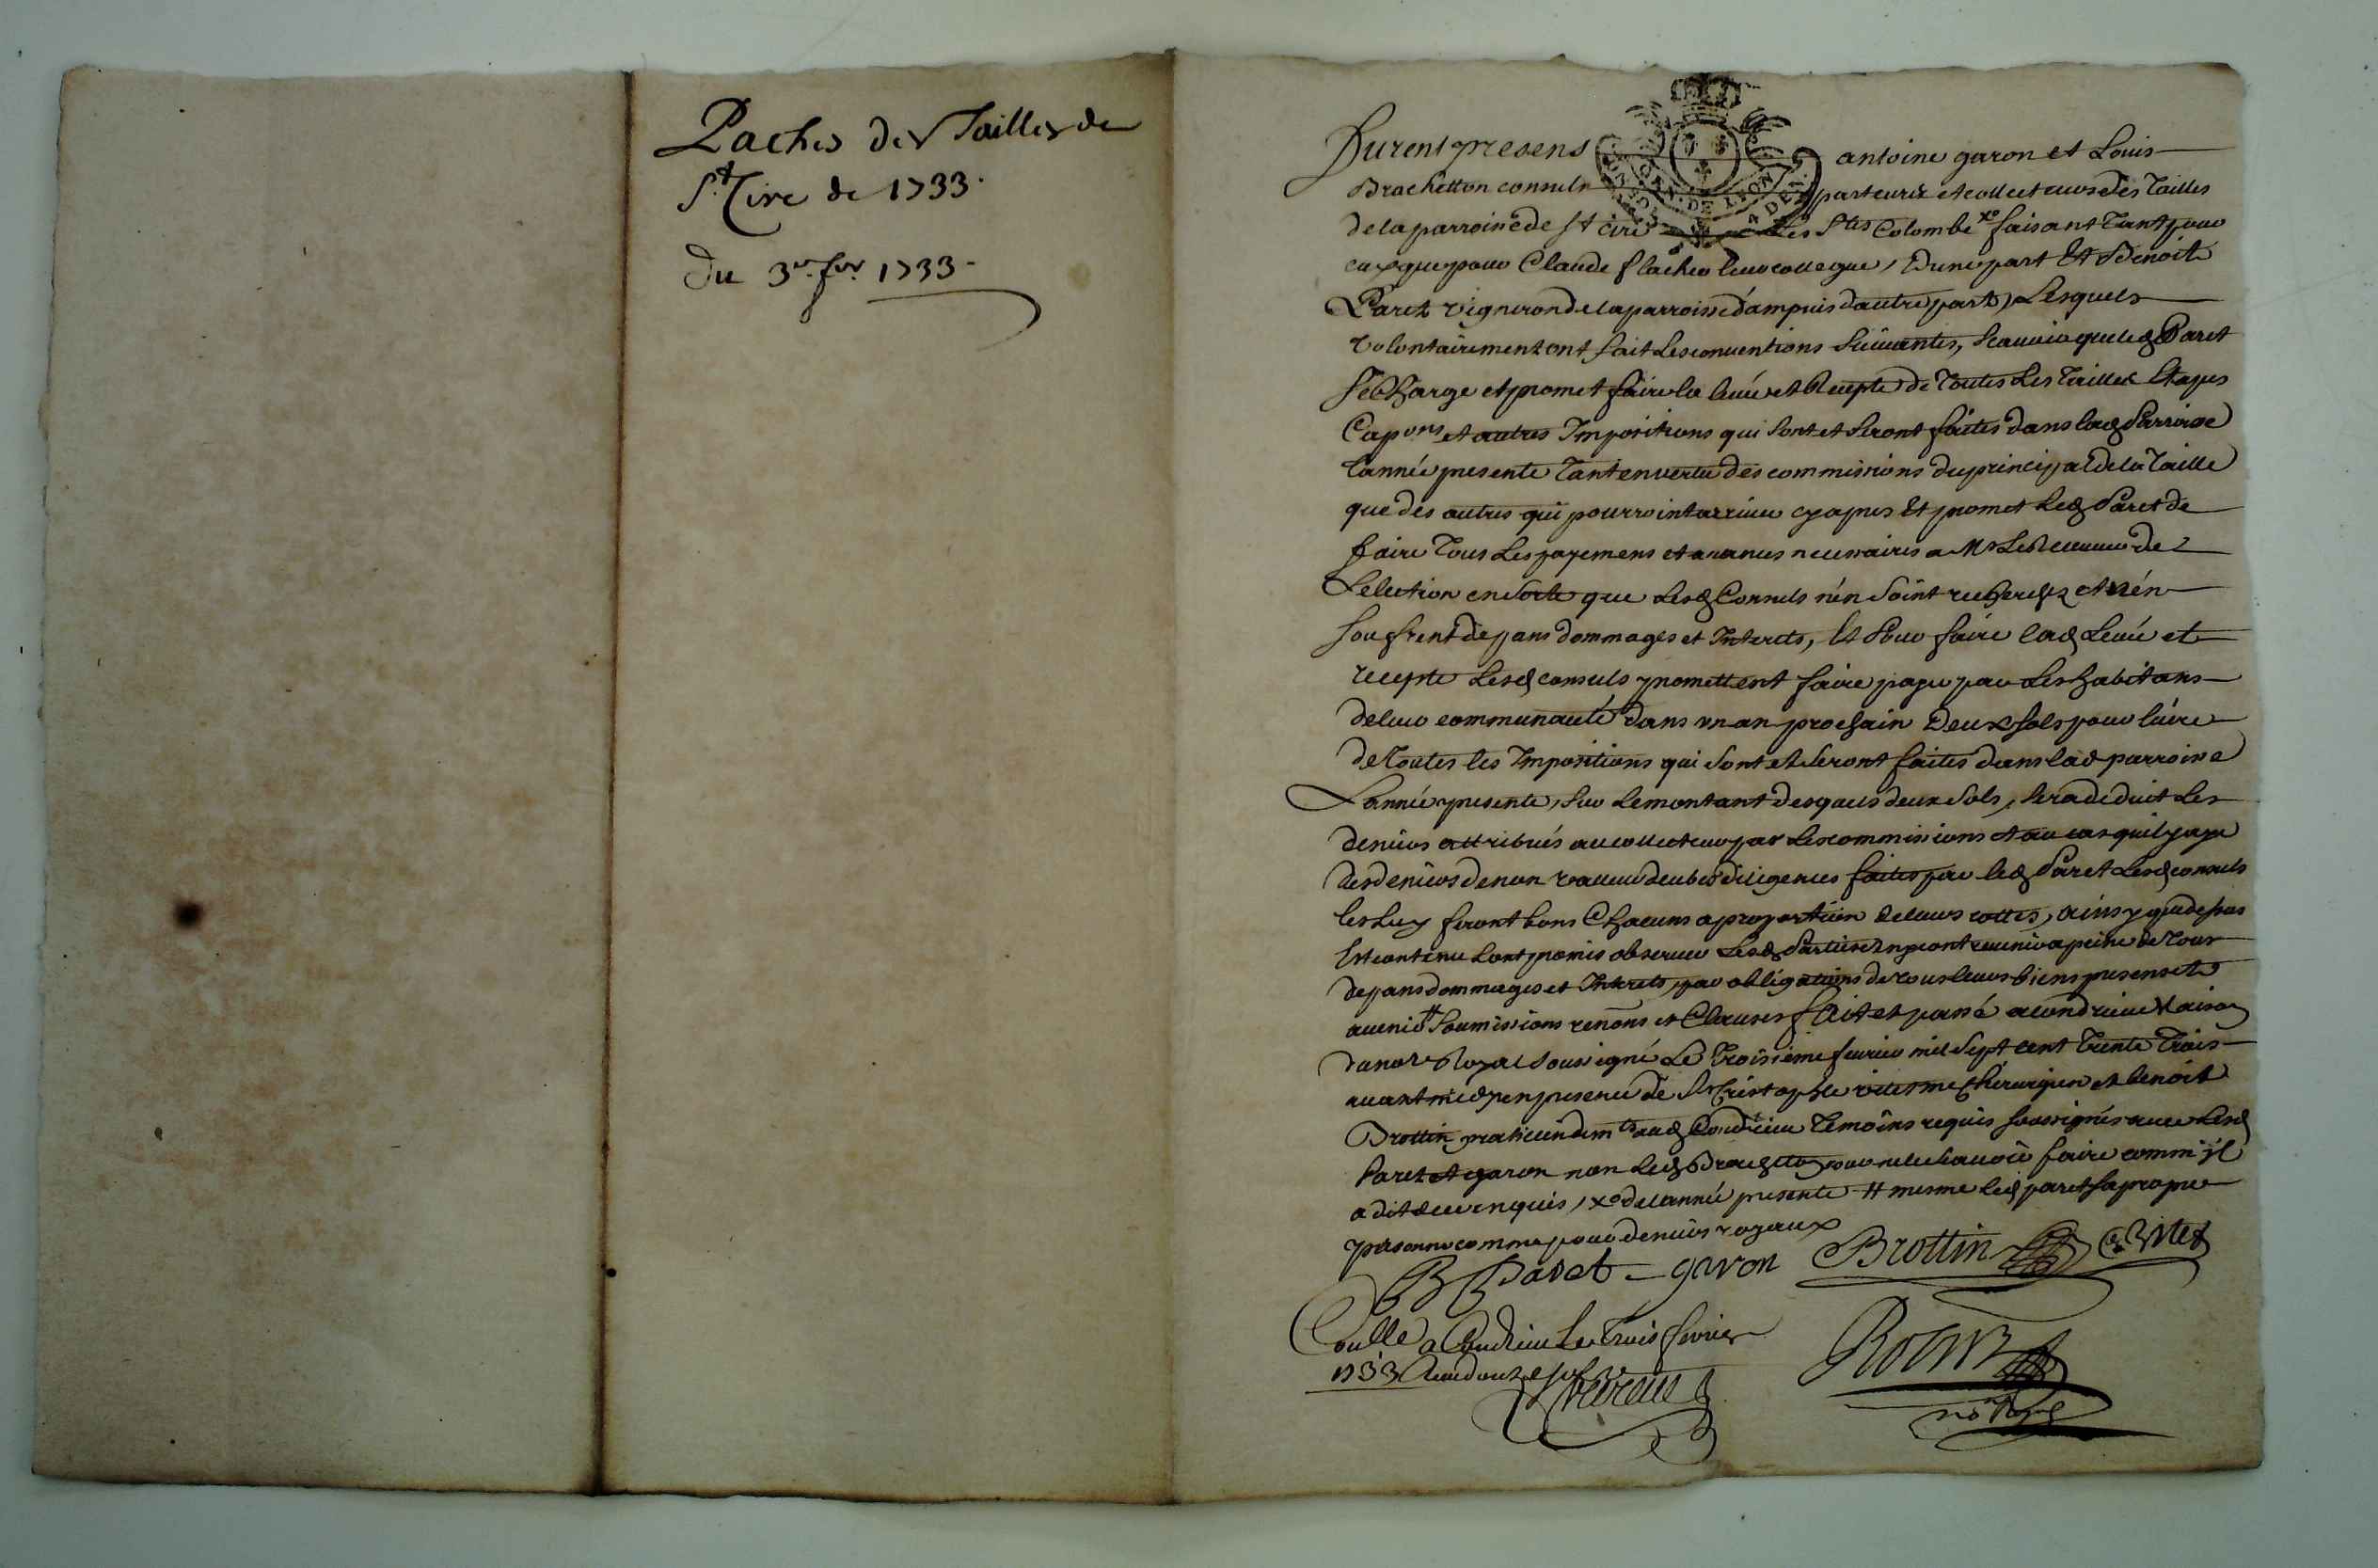 Paches des Tailles de
St. Cire de 1733.
Du 3er. fer. 1733.
Furent presens antoine garon et Louis
Brachetton consuls parteurs et collecteurs des Tailles
de la parroisse de St cire les Stes Colombe xo faisant tant pour
eux que pour Claude flacher leur collegue, d'une part Et Benoit
Paret vigneron de la parroisse d'ampuis d'autre part, Lesquels
volontairement ont fait les conventions suivantes, scauoir que led Paret
se charge et promet faire la leuée et Recepte de toutes Les Tailles Etapes
Capons et autres Impositions qui sont et seront faites dans lad Parroisse
L'année presente Tant en vertu des commissions du principal de la Taille
que des autres qui pourroint arriuer cy apres Et promet Led Paret de
faire Tous Les payemens et auances necessaires a Mr Le Receueur de
L'election en sorte que Lesd Consuls n'en soint recherchez et n'en
souffrent depans dommages et Interets, Et Pour faire lad Leuée et
recepte Lesd consuls promettent faire payer par Les habitans
de leur communauté dans un an prochain Deux sols pour liure
de Toutes les Impositions qui sont et seront faites dans lad parroisse
L'année presente, sur Le montant desquels deux sols, sera deduit Les
deniers attribués au collecteur par Les commissions et au cas quil y aye
des deniers de non valleur deubes diligences faites par led Paret Lesd consuls
les luy feront bons Chacuns a proportion de leurs cottes, ainsy que dessus
Est contenu L'ont promis obseruer Lesd Parties contreuenir a peine de Tous
depans dommages et Interets, par obligations de tous leurs biens presens et
auenir # soumissions renons et Clauses fait et passé a condrieu Maison
du notre Royal soussigné Le Troisieme feurier mil sept cent Trente Trois
auant midy en presence de Sr Cristophle vitet me chirurgien et benoit
Brottin praticien demts aud Condrieu Temoins requis soussignés auec Lesd
Paret et garon non Led Brachetton pour ne le scauoir faire comm'jl
a dit de ce enquis, xo de l'année presente # mesme Led paret sa propre
personne comme pour deniers royaux
B Paret garon Brottin C Vitet
Coullé a Condrieu Le Trois fevrier
1733 Reçu douze sols
notre Roy